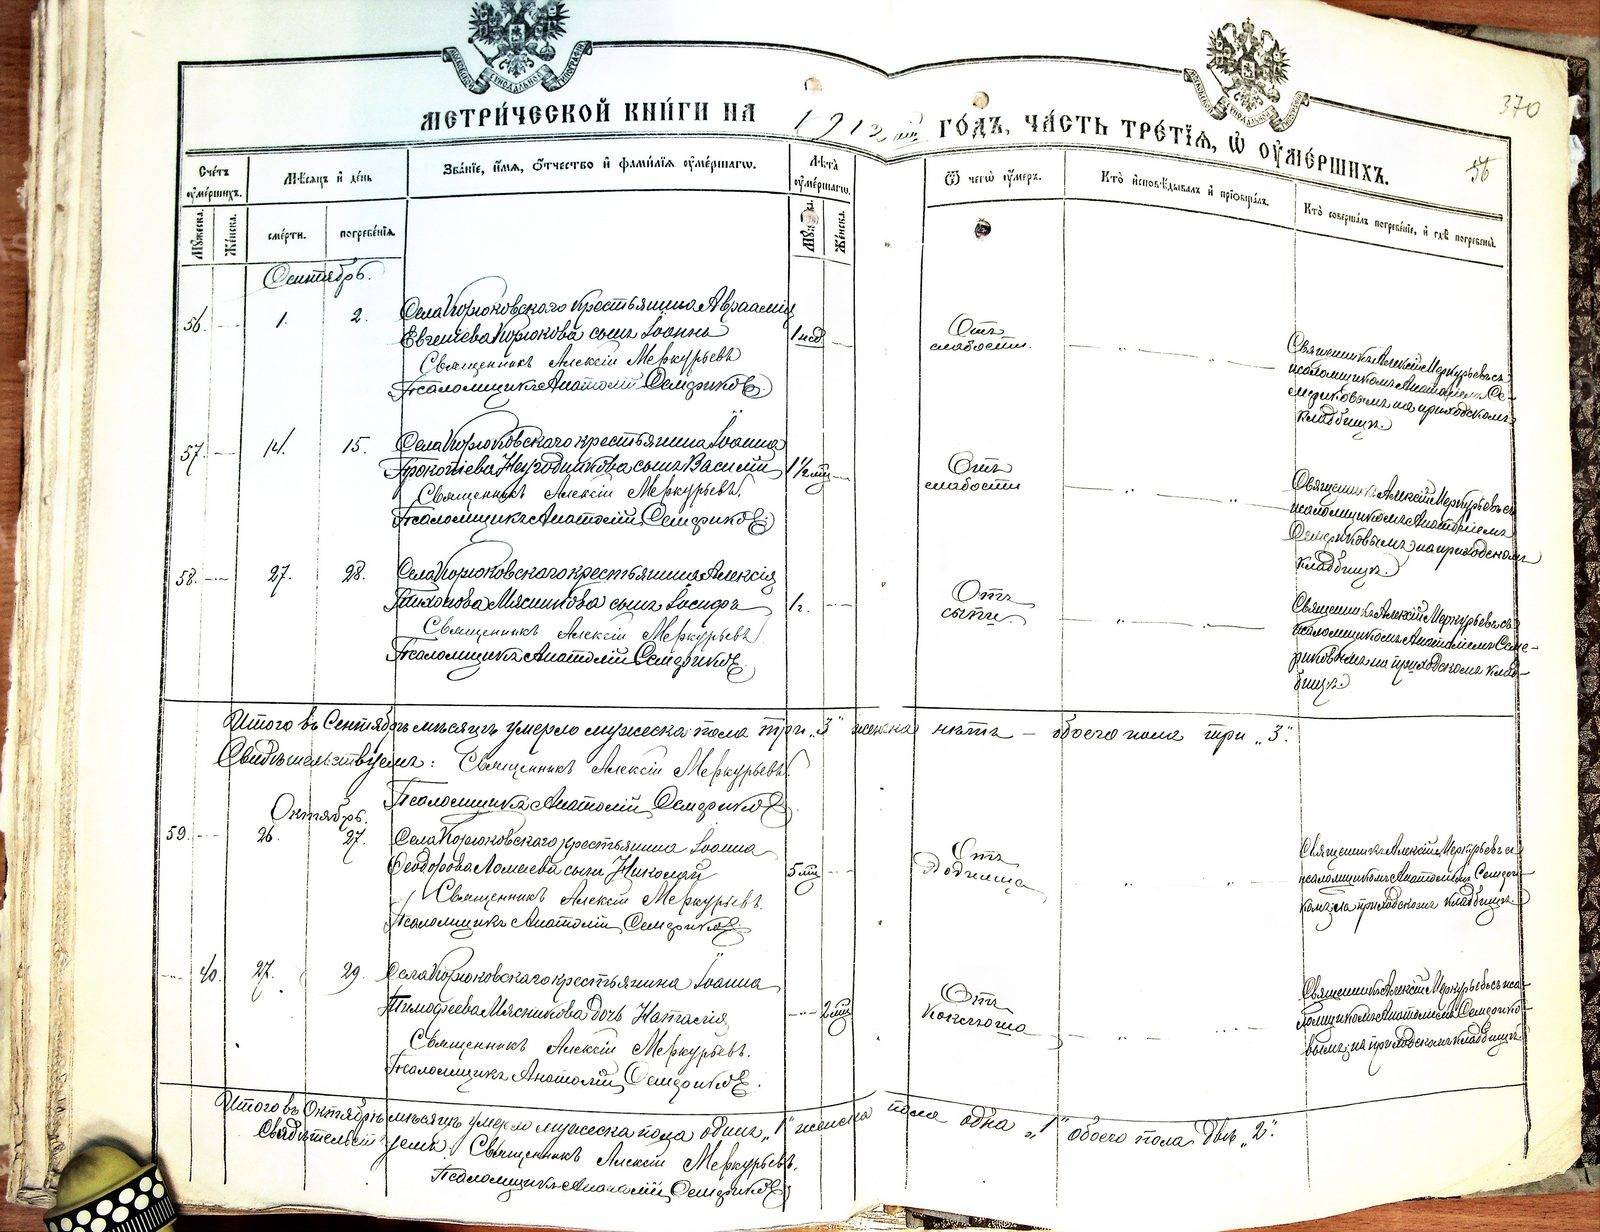 МЕТРИ́ЧЕСКОЙ КНИ́ГИ НА 1912 ГО́ДЪ, ЧА́СТЬ ТРЕ́ТІЯ, Ѡ ОУМЕ́РШИХЪ.
370
56
Счетъ оумершихъ.
Мѣсяцъ и день
Званіе, имя, отчество и фамилія оумершагѡ.
Лѣта оумершагѡ.
Ѿ чегѡ оумеръ.
Кто исповѣдывалъ и пріобщалъ.
Кто совершалъ погребеніе, и гдѣ погребены.
Мужеска.
Женска.
смерти.
погребенія.
Мужеска.
Женска.
Сентябрь.
56. 1. 2.
Села Корюковскаго крестьянина Авраамія
Евгеніева Корюкова сынъ Іоаннъ
Священникъ Алексій Меркурьевъ
Псаломщикъ Анатолій Семдриковъ.
1 нед.
Отъ
слабости.
Священникъ Алексій Меркурьевъ съ
псаломщикомъ Анатоліемъ Се-
мдриковымъ на приходскомъ
кладбищѣ.
57. 14. 15.
Села Корюковскаго крестьянина Іоанна
Прокопіева Неугодникова сынъ Василій
Священникъ Алексій Меркурьевъ.
Псаломщикъ Анатолій Семдриковъ.
1½ мѣц
Отъ
слабости
Священникъ Алексій Меркурьевъ съ
псаломщикомъ Анатоліемъ
Семдриковымъ на приходскомъ
кладбищѣ.
58. 27. 28.
Села Корюковскаго крестьянина Алексія
Тихонова Мясникова сынъ Іосифъ
Священникъ Алексій Меркурьевъ
Псаломщикъ Анатолій Семдриковъ.
1 г.
Отъ
сыпи
Священникъ Алексій Меркурьевъ съ
псаломщикомъ Анатоліемъ Семд-
риковымъ на приходскомъ клад-
бищѣ.
Итого въ Сентябрѣ мѣсяцѣ умерло мужеска пола три „3" женска нѣтъ – обоего пола три „3".
Свидѣтельствуемъ: Священникъ Алексій Меркурьевъ.
Псаломщикъ Анатолій Семдриковъ.
Октябрь.
59. 26. 27.
Села Корюковскаго крестьянина Іоанна
Ѳеодорова сынъ Николай
Священникъ Алексій Меркурьевъ.
Псаломщикъ Анатолій Семдриковъ.
5 мѣц
Отъ
Родимца
Священникъ Алексій Меркурьевъ съ
псаломщикомъ Анатоліемъ Семдри-
на приходскомъ кладбищѣ
40. 27. 29.
Села Корюковскаго крестьянина Іоанна
Тимофеева Мясникова дочь Наталія
Священникъ Алексій Меркурьевъ.
Псаломщикъ Анатолій Семдриковъ.
2 мѣц
Отъ
Коклюша
Священникъ Алексій Меркурьевъ съ пса-
ломщикомъ Анатоліемъ Семдрико-
вымъ на приходскомъ кладбищѣ
Итого въ Октябрѣ мѣсяцѣ умерло мужеска пола одинъ „1" женска пола одна „1" обоего пола двѣ „2".
Свидѣтельствуемъ: Священникъ Алексій Меркурьевъ.
Псаломщикъ Анатолій Семдриковъ